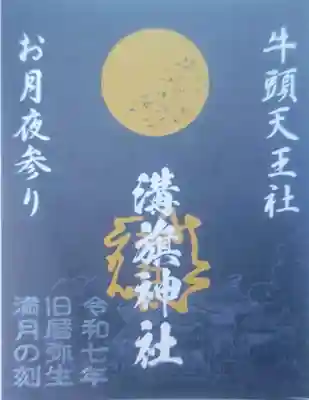 牛頭天王社
溝旗神社
お月夜参り
令和七年
旧暦弥生
満月の刻